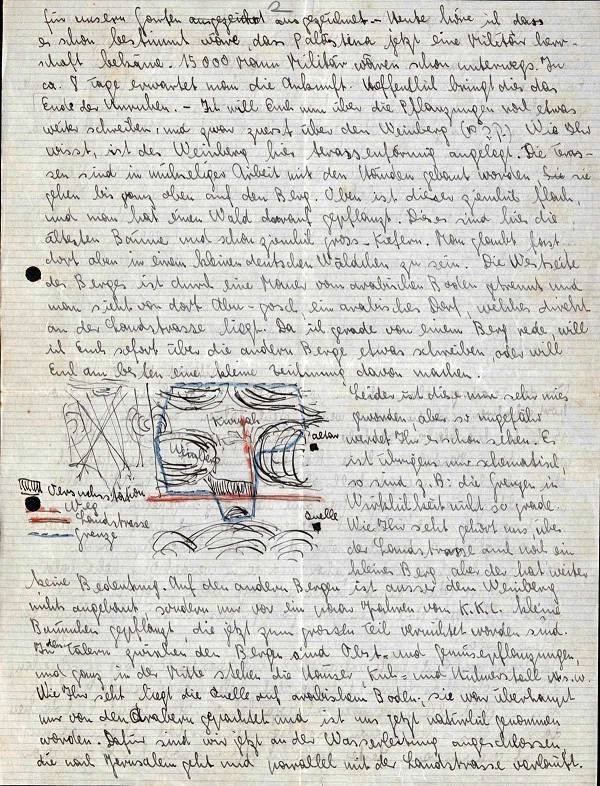 2
für unsern Garten ausgezeichnet. - Heute höre ich dass
es schon bestimmt wäre, dass Palästina jetzt eine Militär herr-
schaft bekäme. 15000 Mann Militär wären schon unterwegs. In
ca. 8 Tage erwartet man die Ankunft. Hoffentlich bringt dies das
Ende der Unruhen. - Ich will Euch nun über die Pflanzungen noch etwas
weiter schreiben, und zwar zuerst über den Weinberg Wie Ihr
wisst, ist der Weinberg hier terassenförmig angelegt. Die Teras-
sen sind in mühseliger Arbeit mit den Händen gebaut worden. Sie
gehen bis ganz oben auf den Berg. Oben ist dieser ziemlich flach,
und man hat einen Wald darauf gepflanzt. Dieses sind hier die
ältesten Bäume und schon ziemlich gross. Kiefern. Man glaubt fast
dort oben in einem kleinen deutschen Wäldchen zu sein. Die Westseite
des Berges ist durch eine Mauer vom arabischen Boden getrennt und
man sieht von dort Abu-gosch, ein arabisches Dorf, welches direkt
an der Landstrasse liegt. Da ich gerade von einem Berg rede, will
ich Euch sofort über die andern Berge etwas schreiben, oder will
Euch am besten eine kleine Zeichnung davon machen.
Kirjath
Weinberg
Quelle
Versuchsstation
Weg
Landstrasse
Grenze
Leider ist diese nun sehr mies
geworden, aber so ungefähr
werdet Ihr es schon sehen. Es
ist übrigens nur schematisch,
so sind z.B. die Grenzen in
Wirklichkeit nicht so grade.
Wie Ihr seht gehört uns über
der Landstrasse auch noch ein
kleiner Berg, aber der hat weiter
keine Bedeutung. Auf den andern Bergen ist ausser dem Weinberg
nichts angebaut, sondern nur vor ein paar Jahren vom K.K.L. kleine
Bäumchen gepflanzt, die jetzt zum grossen Teil vernichtet worden sind.
In den Tälern zwischen den Bergen sind Obst- und Gemüsepflanzungen,
und ganz in der Mitte stehen die Häuser, Kuh- und Hühnerstall u.s.w.
Wie Ihr seht liegt die Quelle auf arabischem Boden, sie war überhaupt
nur von den Arabern gepachtet und ist uns jetzt natürlich genommen
worden. Dafür sind wir jetzt an der Wasserleitung angeschlossen
die nach Jerusalem geht und parallel mit der Landstrasse verläuft.